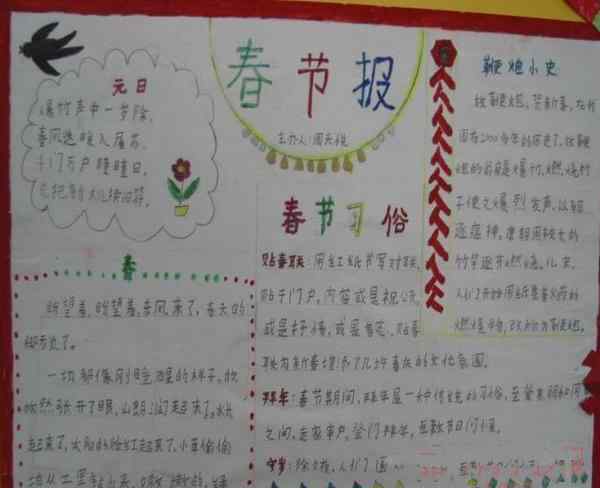 春节报
主办人:周天锐
元日
爆竹声中一岁除,
春风送暖入屠苏,
千门万户瞳瞳日,
总把新桃换旧符。
鞭炮小史
放鞭炮,贺新春,在我
国有2000多年的历史了,但鞭
炮的前身是爆竹,燃烧竹
子使之爆烈发声,以驱
逐瘟神,唐朝用较长的
竹竿逐节燃烧,
人们开始用纸裹着火药的
燃爆物,改称为鞭炮。
春节习俗
贴春联:用红纸书写对联,
贴于门户,内容或是祝福,
或是抒情,或是
联为新春增添了几许喜庆的文化氛围。
拜年:春节期间,拜年是一种传统的习俗,至爱亲朋和同
之间,走家串户,登门拜年,互致节日问候。
守岁:除夕夜,人们
春
盼望着,盼望着,东风来了,春天的
脚步近了。
一切都像刚睡醒的样子,欣
欣然张开了眼,山朗润起来了,水长
起来了,太阳的脸红起来了,小草偷偷
地从土里钻出来,嫩嫩的,绿